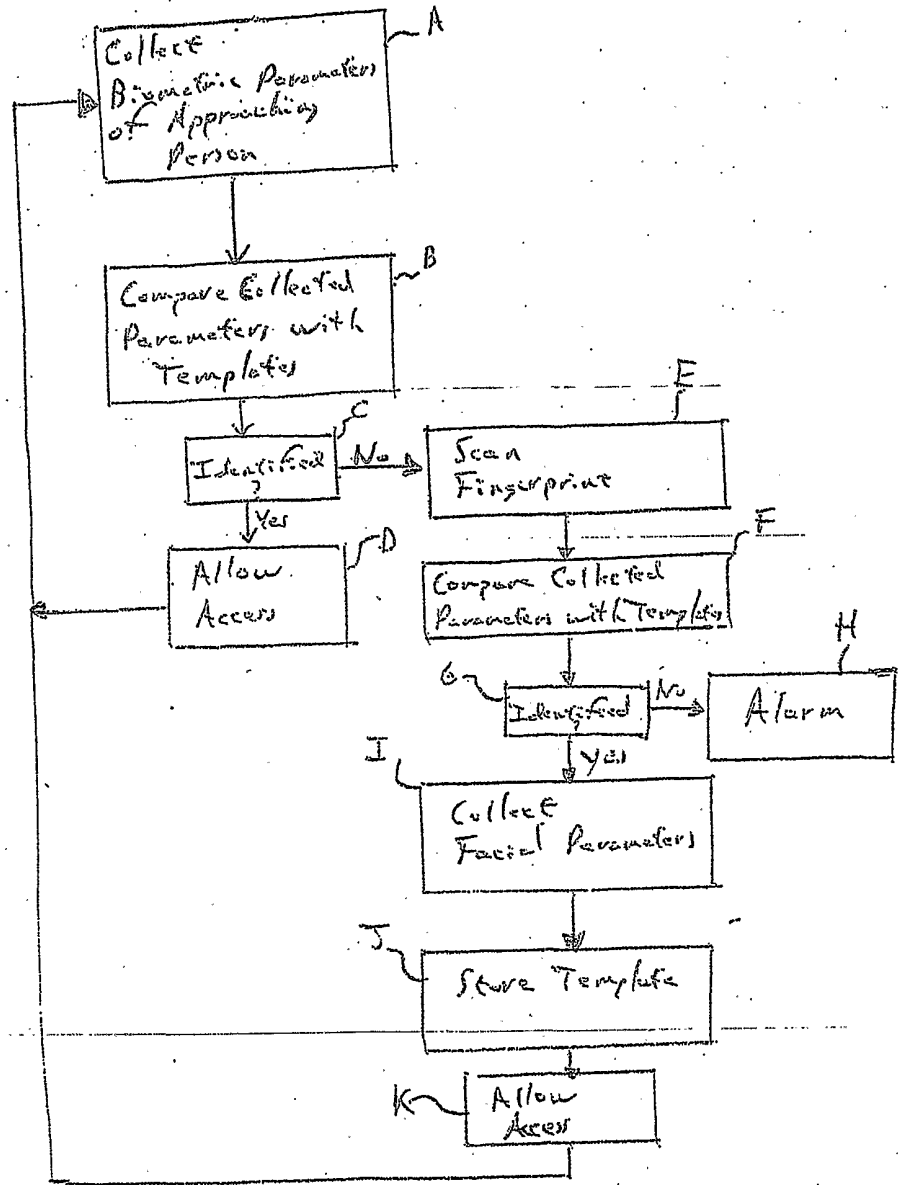 A
Collect
Biometric Parameters
of Approaching
Person
B
Compare Collected
Parameters with
Templates
C
Identified
?
No
Yes
D
Allow
Access
E
Scan
Fingerprint
F
Compare Collected
Parameters with Templates
G
Identified
?
No
Yes
H
Alarm
I
Collect
Facial Parameters
J
Store Template
K
Allow
Access